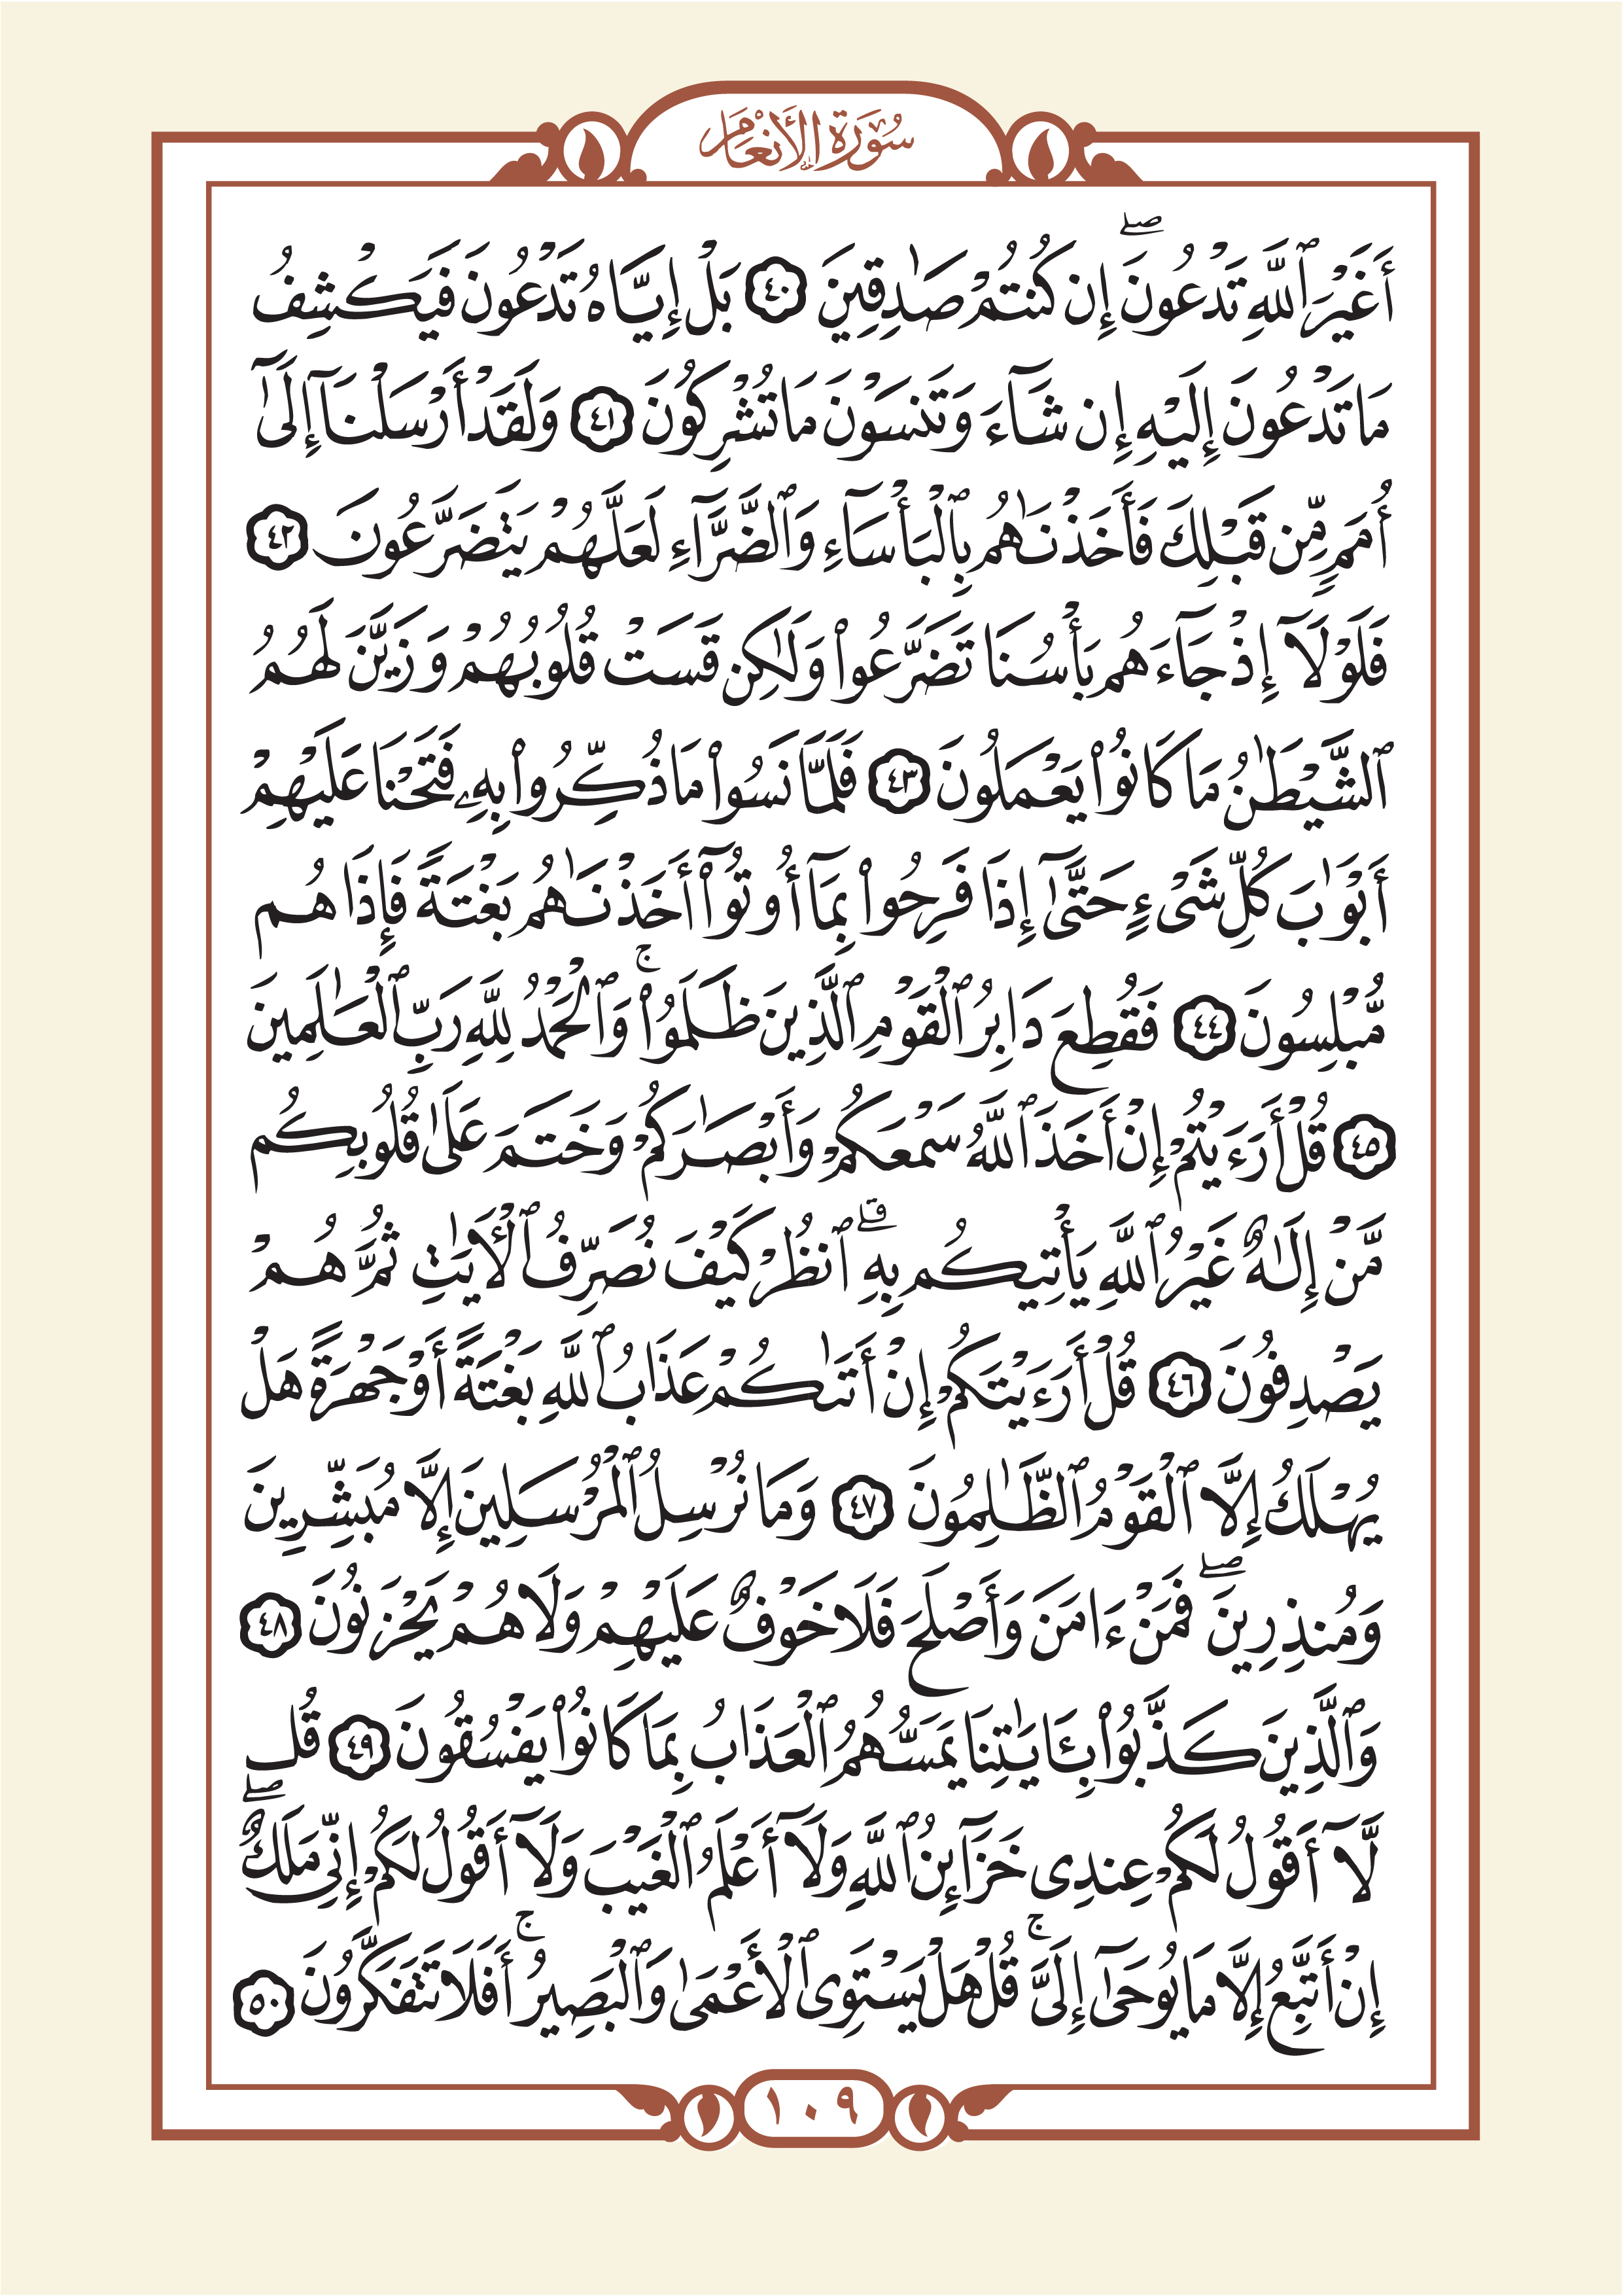 سُورَةُ الأَنْعَامِ
أَغَيْرَ ٱللَّهِ تَدْعُونَ ۖ إِن كُنتُمْ صَـٰدِقِينَ ٤٠ بَلْ إِيَّاهُ تَدْعُونَ فَيَكْشِفُ
مَا تَدْعُونَ إِلَيْهِ إِن شَآءَ وَتَنسَوْنَ مَا تُشْرِكُونَ ٤١ وَلَقَدْ أَرْسَلْنَآ إِلَىٰٓ
أُمَمٍ مِّن قَبْلِكَ فَأَخَذْنَـٰهُم بِٱلْبَأْسَآءِ وَٱلضَّرَّآءِ لَعَلَّهُمْ يَتَضَرَّعُونَ ٤٢
فَلَوْلَآ إِذْ جَآءَهُم بَأْسُنَا تَضَرَّعُوا۟ وَلَـٰكِن قَسَتْ قُلُوبُهُمْ وَزَيَّنَ لَهُمُ
ٱلشَّيْطَـٰنُ مَا كَانُوا۟ يَعْمَلُونَ ٤٣ فَلَمَّا نَسُوا۟ مَا ذُكِّرُوا۟ بِهِۦ فَتَحْنَا عَلَيْهِمْ
أَبْوَٰبَ كُلِّ شَىْءٍ حَتَّىٰٓ إِذَا فَرِحُوا۟ بِمَآ أُوتُوٓا۟ أَخَذْنَـٰهُم بَغْتَةً فَإِذَا هُم
مُّبْلِسُونَ ٤٤ فَقُطِعَ دَابِرُ ٱلْقَوْمِ ٱلَّذِينَ ظَلَمُوا۟ ۚ وَٱلْحَمْدُ لِلَّهِ رَبِّ ٱلْعَـٰلَمِينَ
٤٥ قُلْ أَرَءَيْتُمْ إِنْ أَخَذَ ٱللَّهُ سَمْعَكُمْ وَأَبْصَـٰرَكُمْ وَخَتَمَ عَلَىٰ قُلُوبِكُم
مَّنْ إِلَـٰهٌ غَيْرُ ٱللَّهِ يَأْتِيكُم بِهِ ۗ ٱنظُرْ كَيْفَ نُصَرِّفُ ٱلْـَٔايَـٰتِ ثُمَّ هُمْ
يَصْدِفُونَ ٤٦ قُلْ أَرَءَيْتَكُمْ إِنْ أَتَىٰكُمْ عَذَابُ ٱللَّهِ بَغْتَةً أَوْ جَهْرَةً هَلْ
يُهْلَكُ إِلَّا ٱلْقَوْمُ ٱلظَّـٰلِمُونَ ٤٧ وَمَا نُرْسِلُ ٱلْمُرْسَلِينَ إِلَّا مُبَشِّرِينَ
وَمُنذِرِينَ ۖ فَمَنْ ءَامَنَ وَأَصْلَحَ فَلَا خَوْفٌ عَلَيْهِمْ وَلَا هُمْ يَحْزَنُونَ ٤٨
وَٱلَّذِينَ كَذَّبُوا۟ بِـَٔايَـٰتِنَا يَمَسُّهُمُ ٱلْعَذَابُ بِمَا كَانُوا۟ يَفْسُقُونَ ٤٩ قُل
لَّآ أَقُولُ لَكُمْ عِندِى خَزَآئِنُ ٱللَّهِ وَلَآ أَعْلَمُ ٱلْغَيْبَ وَلَآ أَقُولُ لَكُمْ إِنِّى مَلَكٌ ۖ
إِنْ أَتَّبِعُ إِلَّا مَا يُوحَىٰٓ إِلَىَّ ۚ قُلْ هَلْ يَسْتَوِى ٱلْأَعْمَىٰ وَٱلْبَصِيرُ ۚ أَفَلَا تَتَفَكَّرُونَ ٥٠
١٠٩